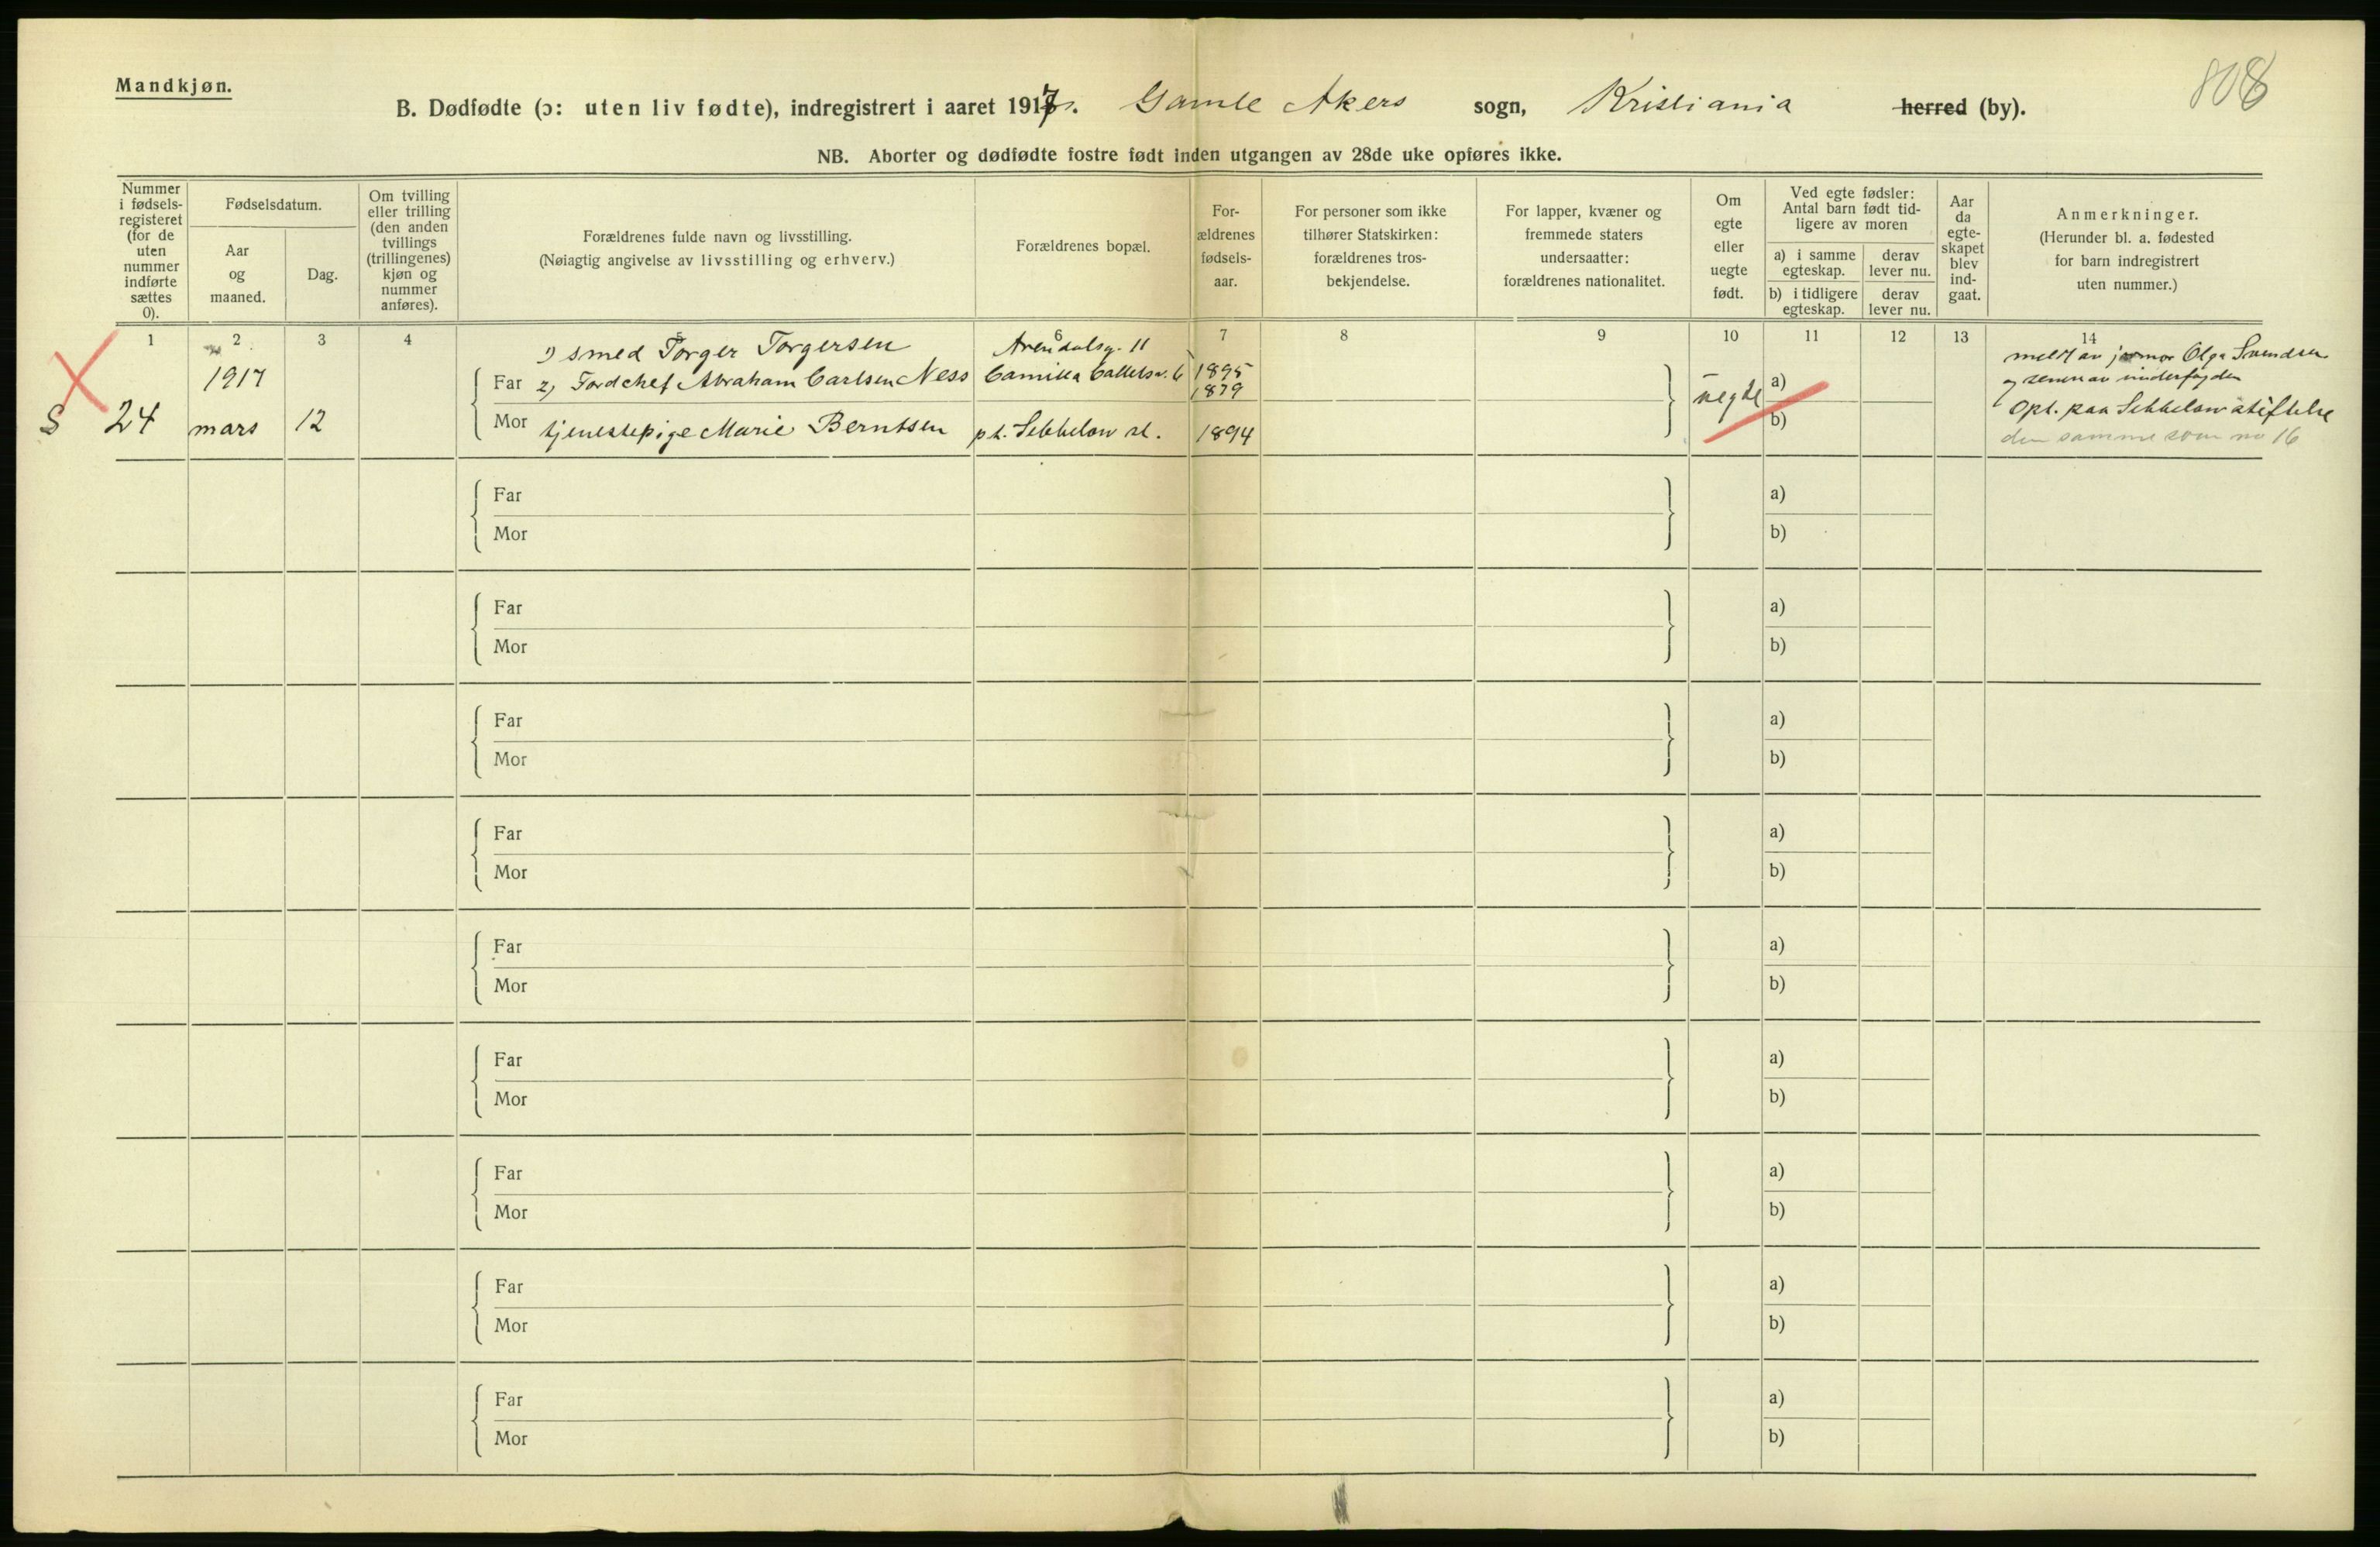 Mandkjøn.
808
B. Dødfødte (ɔ: uten liv fødte), indregistrert i aaret 1917. Gamle Akers sogn, Kristiania herred (by).
NB. Aborter og dødfødte fostre født inden utgangen av 28de uke opføres ikke.
Nummer i fødsels-registeret (for de uten nummer indførte sættes 0).
Fødselsdatum.
Aar og maaned.
Dag.
Om tvilling eller trilling (den anden tvillings (trillingenes) kjøn og nummer anføres).
Forældrenes fulde navn og livsstilling.
(Nøiagtig angivelse av livsstilling og erhverv.)
Forældrenes bopæl.
For-ældrenes fødsels-aar.
For personer som ikke tilhører Statskirken: forældrenes tros-bekjendelse.
For lapper, kvæner og fremmede staters undersaatter: forældrenes nationalitet.
Om egte eller uegte født.
Ved egte fødsler: Antal barn født tid-ligere av moren
a) i samme egteskap.
derav lever nu.
b) i tidligere egteskap.
derav lever nu.
Aar da egte-skapet blev ind-gaat.
Anmerkninger.
(Herunder bl. a. fødested for barn indregistrert uten nummer.)
1 2 3 4 5 6 7 8 9 10 11 12 13 14
S 24
1917
mars 12
1) smed Torger Torgersen Arendalsg. 11 1895
Far 2) Abraham Carlsen Ness Camilla Colletsv. 6 1879
Mor tjenestepige Marie Berntsen pt. Sebbelow st. 1894
uegte
a)
b)
meldt av jormor Olga Svendsen
opt. paa Sebbelows stiftelse
den samme som no 16
Far
Mor
a)
b)
Far
Mor
a)
b)
Far
Mor
a)
b)
Far
Mor
a)
b)
Far
Mor
a)
b)
Far
Mor
a)
b)
Far
Mor
a)
b)
Far
Mor
a)
b)
Far
Mor
a)
b)